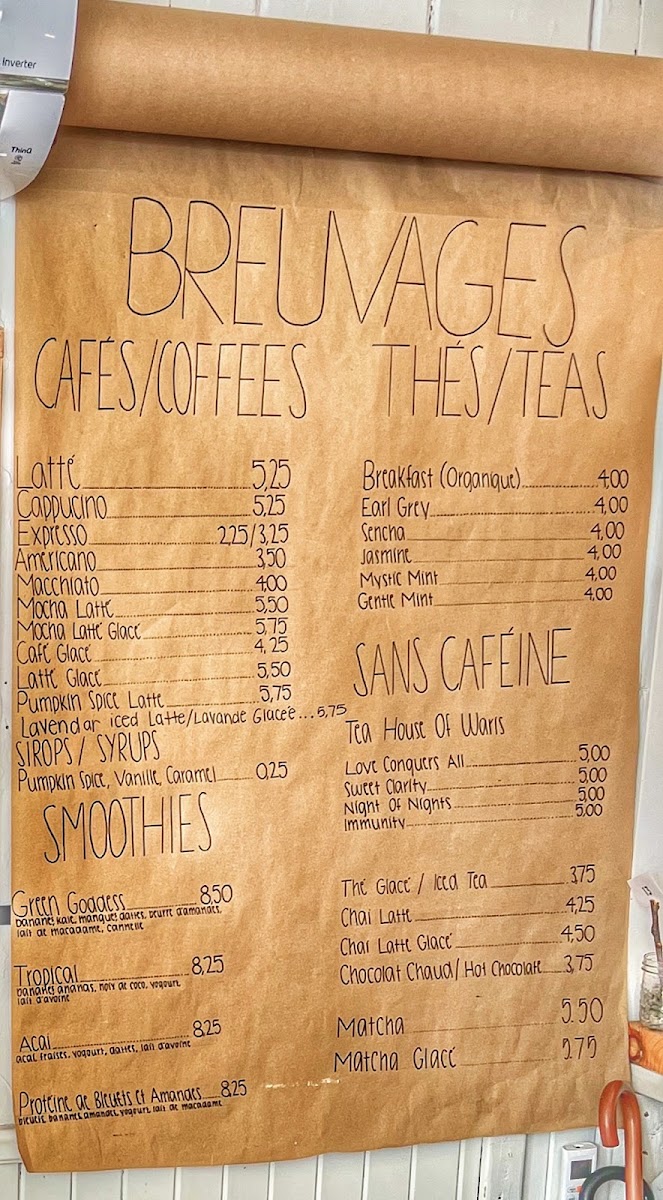 Inverter
ThinQ
BREUVAGES
CAFÉS/COFFEES
Latté 5,25
Cappucino 5,25
Expresso 2,25/3,25
Américano 3,50
Macchiato 4,00
Mocha Latté 5,50
Mocha Latté Glacé 5,75
Café Glacé 4,25
Latté Glacé 5,50
Pumpkin Spice Latte 5,75
Lavendar iced Latte/Lavande Glaceé...5,75
SIROPS / SYRUPS
Pumpkin Spice, Vanille, Caramel 0,25
SMOOTHIES
Green Goddess 8,50
bananes, kale, mangue, dattes, beurre d'amandes,
lait de macadame, cannelle
Tropical 8,25
bananes ananas, noix de coco, yogourt,
lait d'avoine
Acai 8,25
acai, fraises, yogourt, dattes, lait d'avoine
Protéine de Bleuets et Amandes 8,25
bleuets, bananes, amandes, yogourt, lait de macadame
THÉS/TEAS
Breakfast (Organique) 4,00
Earl Grey 4,00
Sencha 4,00
Jasmine 4,00
Mystic Mint 4,00
Gentle Mint 4,00
SANS CAFÉINE
Tea House Of Waris
Love Conquers All 5,00
Sweet Clarity 5,00
Night Of Nights 5,00
Immunity 5,00
Thé Glacé / Iced Tea 3,75
Chai Latté 4,25
Chai Latté Glacé 4,50
Chocolat Chaud/Hot Chocolate 3,75
Matcha 5.50
Matcha Glacé 5.75